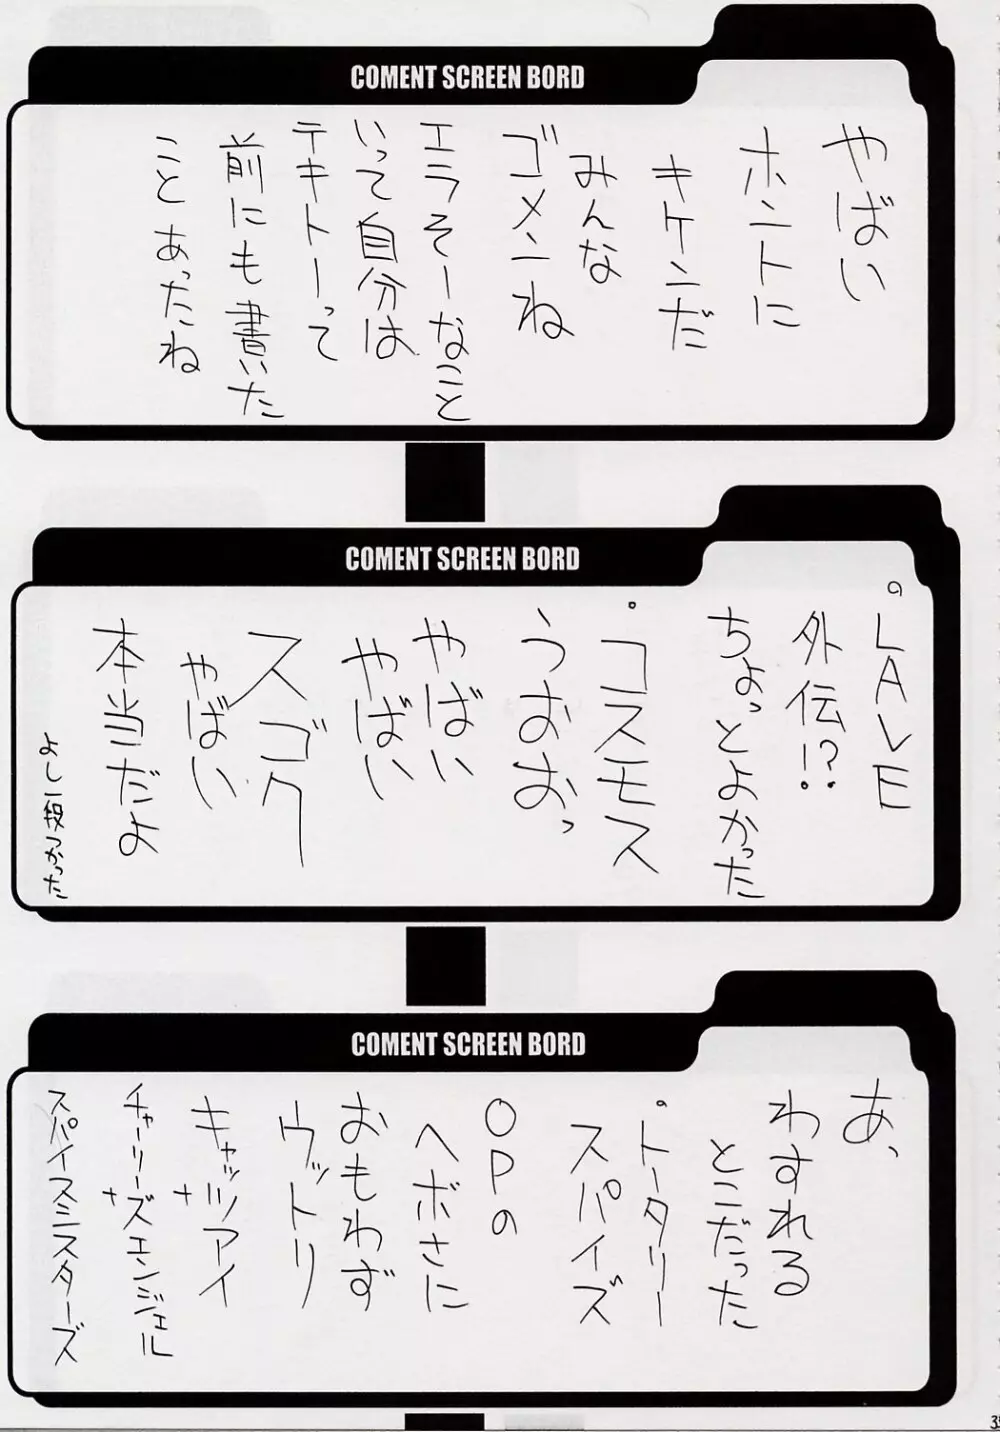 COMENT SCREEN BORD
やばい
ホントに
キケンだ
みんな
ゴメンね
エラそーなこと
いって自分は
テキトーって
前にも書いた
ことあったね
COMENT SCREEN BORD
LAVE
外伝!?
ちょっとよかった
・コスモス
うおおっ
やばい
やばい
スゴク
やばい
本当だよ
よし一段つかった
COMENT SCREEN BORD
あ、
わすれる
とこだった
・トータリー
スパイズ
OPの
ヘボさに
おもわず
ウットリ
キャッツアイ
+
チャーリーズエンジェル
+
スパイスミスターズ